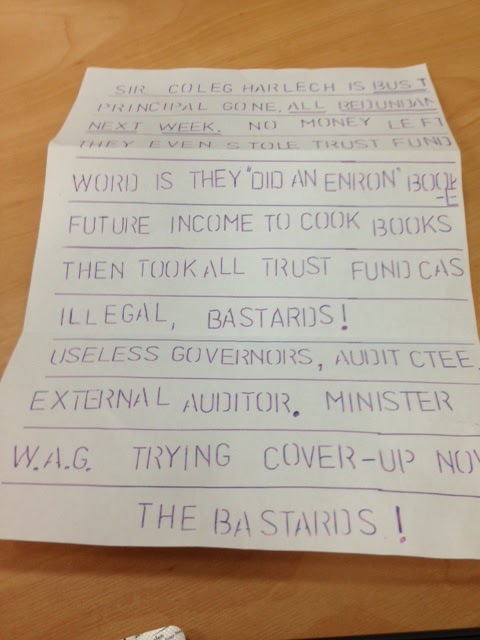 SIR. COLEG HARLECH IS BUST
PRINCIPAL GONE. ALL REDUNDAN
NEXT WEEK. NO MONEY LEFT
THEY EVEN STOLE TRUST FUND
WORD IS THEY "DID AN ENRON" BOOK
FUTURE INCOME TO COOK BOOKS
THEN TOOK ALL TRUST FUND CAS
ILLEGAL, BASTARDS!
USELESS GOVERNORS, AUDIT CTEE.
EXTERNAL AUDITOR. MINISTER
W.A.G. TRYING COVER-UP NOW
THE BASTARDS!